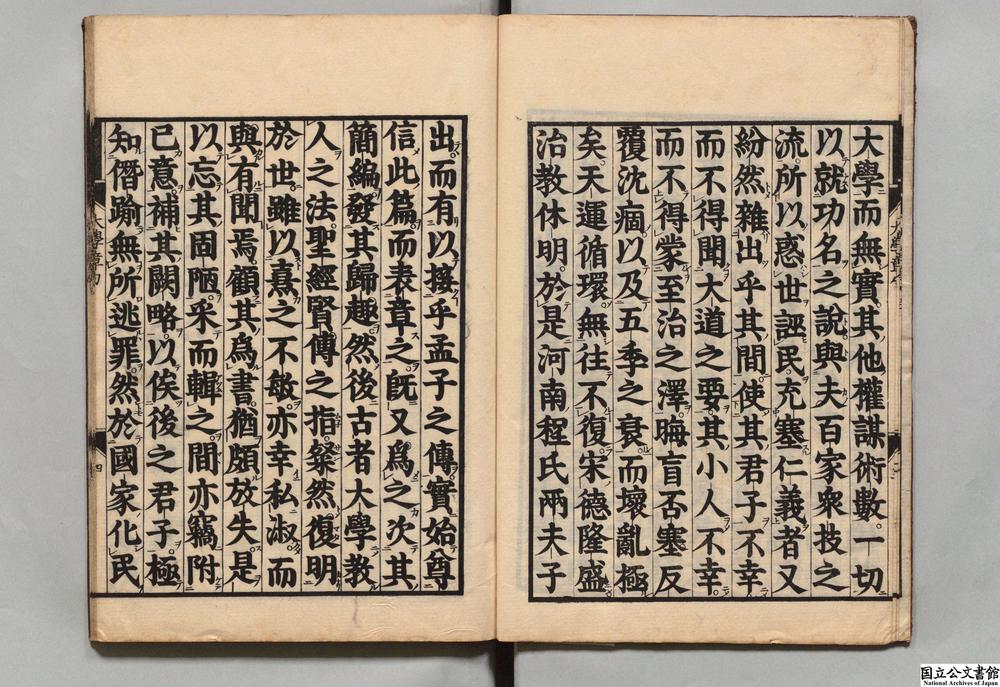 大學而無實其他權謀術數一切
以就功名之說與夫百家衆技之
流所以惑世誣民充塞仁義者又
紛然雜出乎其間使其君子不幸
而不得聞大道之要其小人不幸
而不得蒙至治之澤晦盲否塞反
覆沈痼以及五季之衰而壞亂極
矣天運循環無往不復宋德隆盛
治教休明於是河南程氏兩夫子
出而有以接乎孟子之傳實始尊
信此篇而表章之既又爲之次其
簡編發其歸趣然後古者大學教
人之法聖經賢傳之指粲然復明
於世雖以熹之不敏亦幸私淑而
與有聞焉顧其爲書猶頗放失是
以忘其固陋采而輯之間亦竊附
已意補其闕略以俟後之君子極
知僭踰無所逃罪然於國家化民
四
国立公文書館
National Archives of Japan